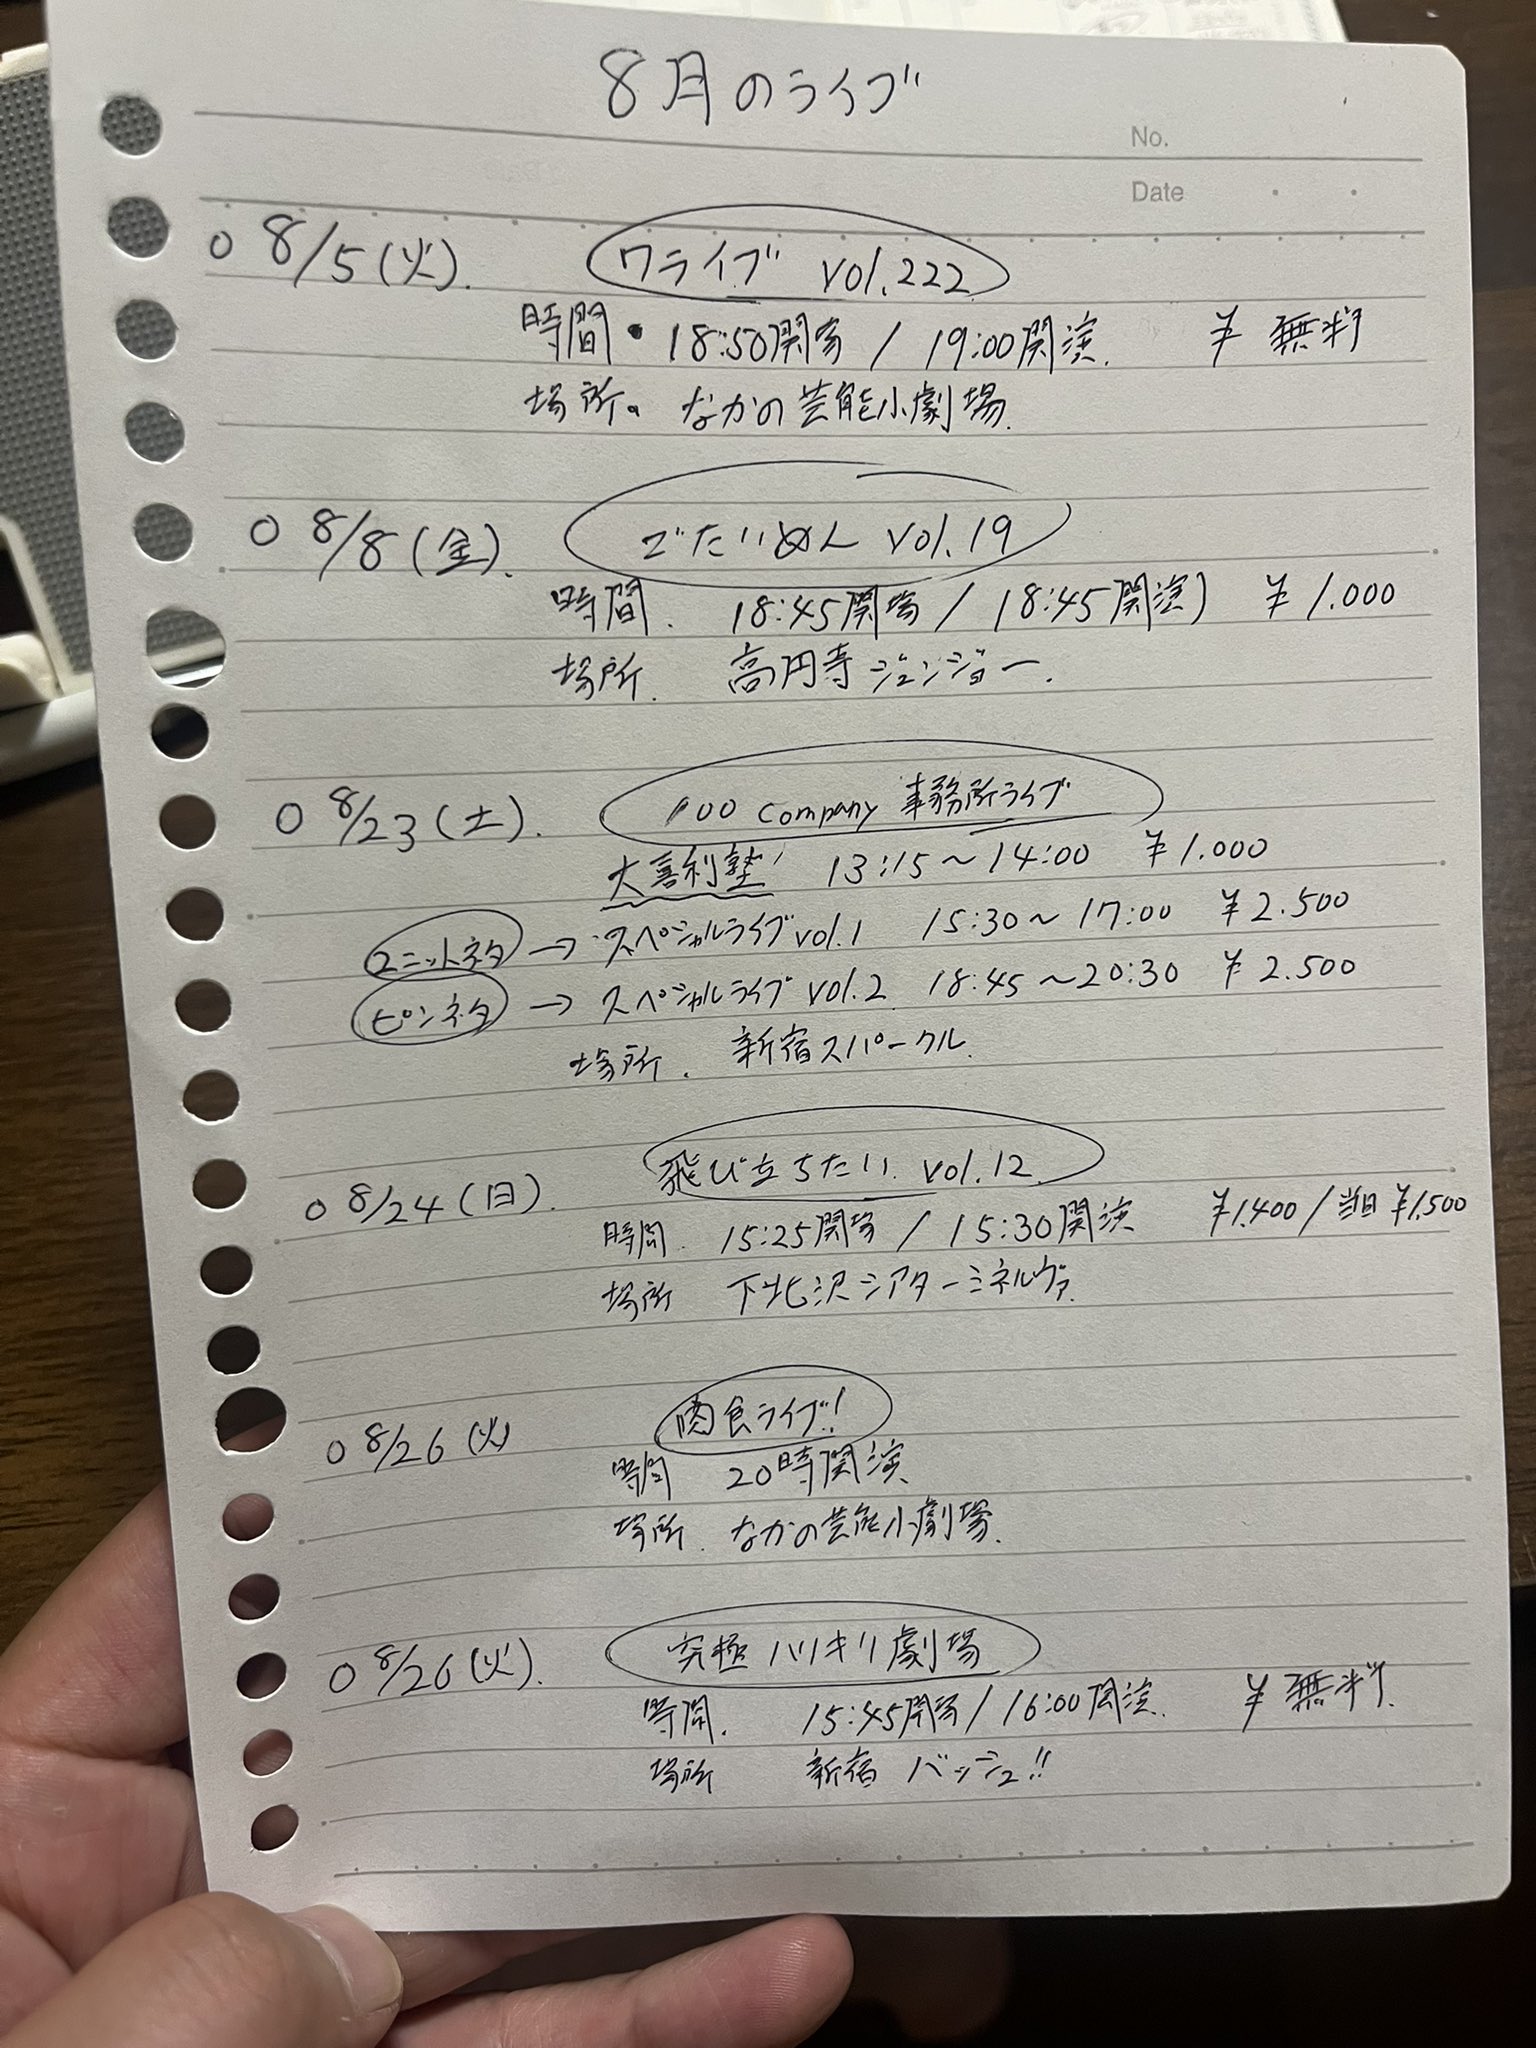 8月のライブ
No.
Date
○ 8/5(火). ワライブ vol.222
時間・18:50開場 / 19:00開演. ¥ 無料
場所。なかの芸能小劇場.
○ 8/8(金). ごたいめん vol.19
時間. 18:45開場 / 18:45開演) ¥1.000
場所. 高円寺ジュンジョー.
○ 8/23(土). 100 company 事務所ライブ
大喜利塾 13:15〜14:00 ¥1.000
ユニットネタ → スペシャルライブvol.1 15:30〜17:00 ¥2.500
ピンネタ → スペシャルライブvol.2 18:45〜20:30 ¥2.500
場所. 新宿スパークル.
○ 8/24(日). 飛び立ちたい vol.12
時間. 15:25開場 / 15:30開演 ¥1,400/当日¥1,500
場所 下北沢シアターミネルヴァ.
○ 8/26(火) 肉食ライブ!
時間 20時開演
場所. なかの芸能小劇場.
○ 8/26(火). 究極ハリキリ劇場
時間. 15:45開場/16:00開演. ¥ 無料.
場所 新宿バッシュ!!